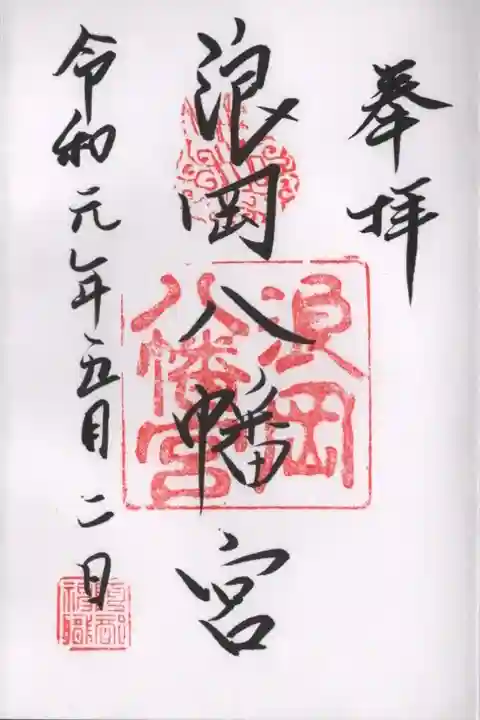 奉拝
浪岡八幡宮
令和元年五月二日
浪岡
八幡宮